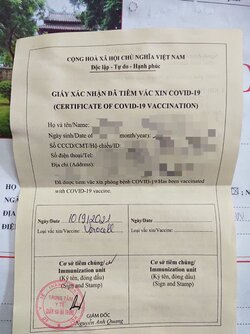 CỘNG HOÀ XÃ HỘI CHỦ NGHĨA VIỆT NAM
Độc lập - Tự do - Hạnh phúc
GIẤY XÁC NHẬN ĐÃ TIÊM VẮC XIN COVID-19
(CERTIFICATE OF COVID-19 VACCINATION)
Họ và tên/Name:
Ngày sinh/Date of month/years:
Số CCCD/CMT/Hộ chiếu/ID:
Số điện thoại/Tel:
Địa chỉ (Address):
Đã được tiêm vắc xin phòng bệnh COVID-19/Has been vaccinated
with COVID-19 vaccine.
Ngày/Date: 10/9/2021
Ngày/Date:
Loại vắc xin/Vaccine:
Loại vắc xin/Vaccine:
Cơ sở tiêm chủng/
Immunization unit
(Ký tên, đóng dấu)
(Sign and Stamp)
Cơ sở tiêm chủng/
Immunization unit
(Ký tên, đóng dấu)
(Sign and Stamp)
TRUNG TÂM
Y TẾ
GIÁM ĐỐC
Nguyễn Anh Quang